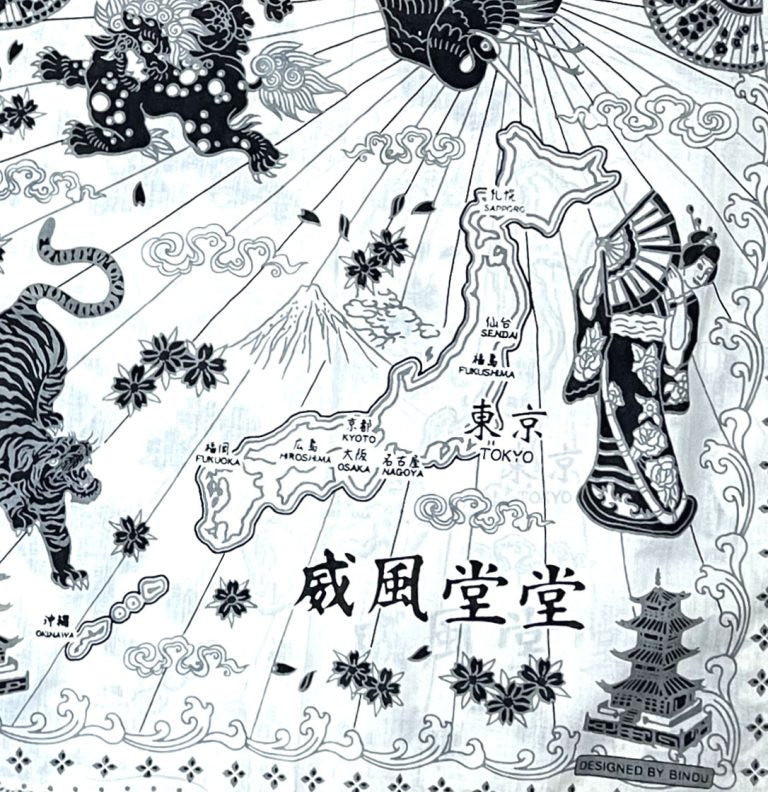 札幌
SAPPORO
仙台
SENDAI
福島
FUKUSHIMA
東京
TOKYO
京都
KYOTO
大阪
OSAKA
名古屋
NAGOYA
広島
HIROSHIMA
福岡
FUKUOKA
沖縄
OKINAWA
威風堂堂
DESIGNED BY BINDU